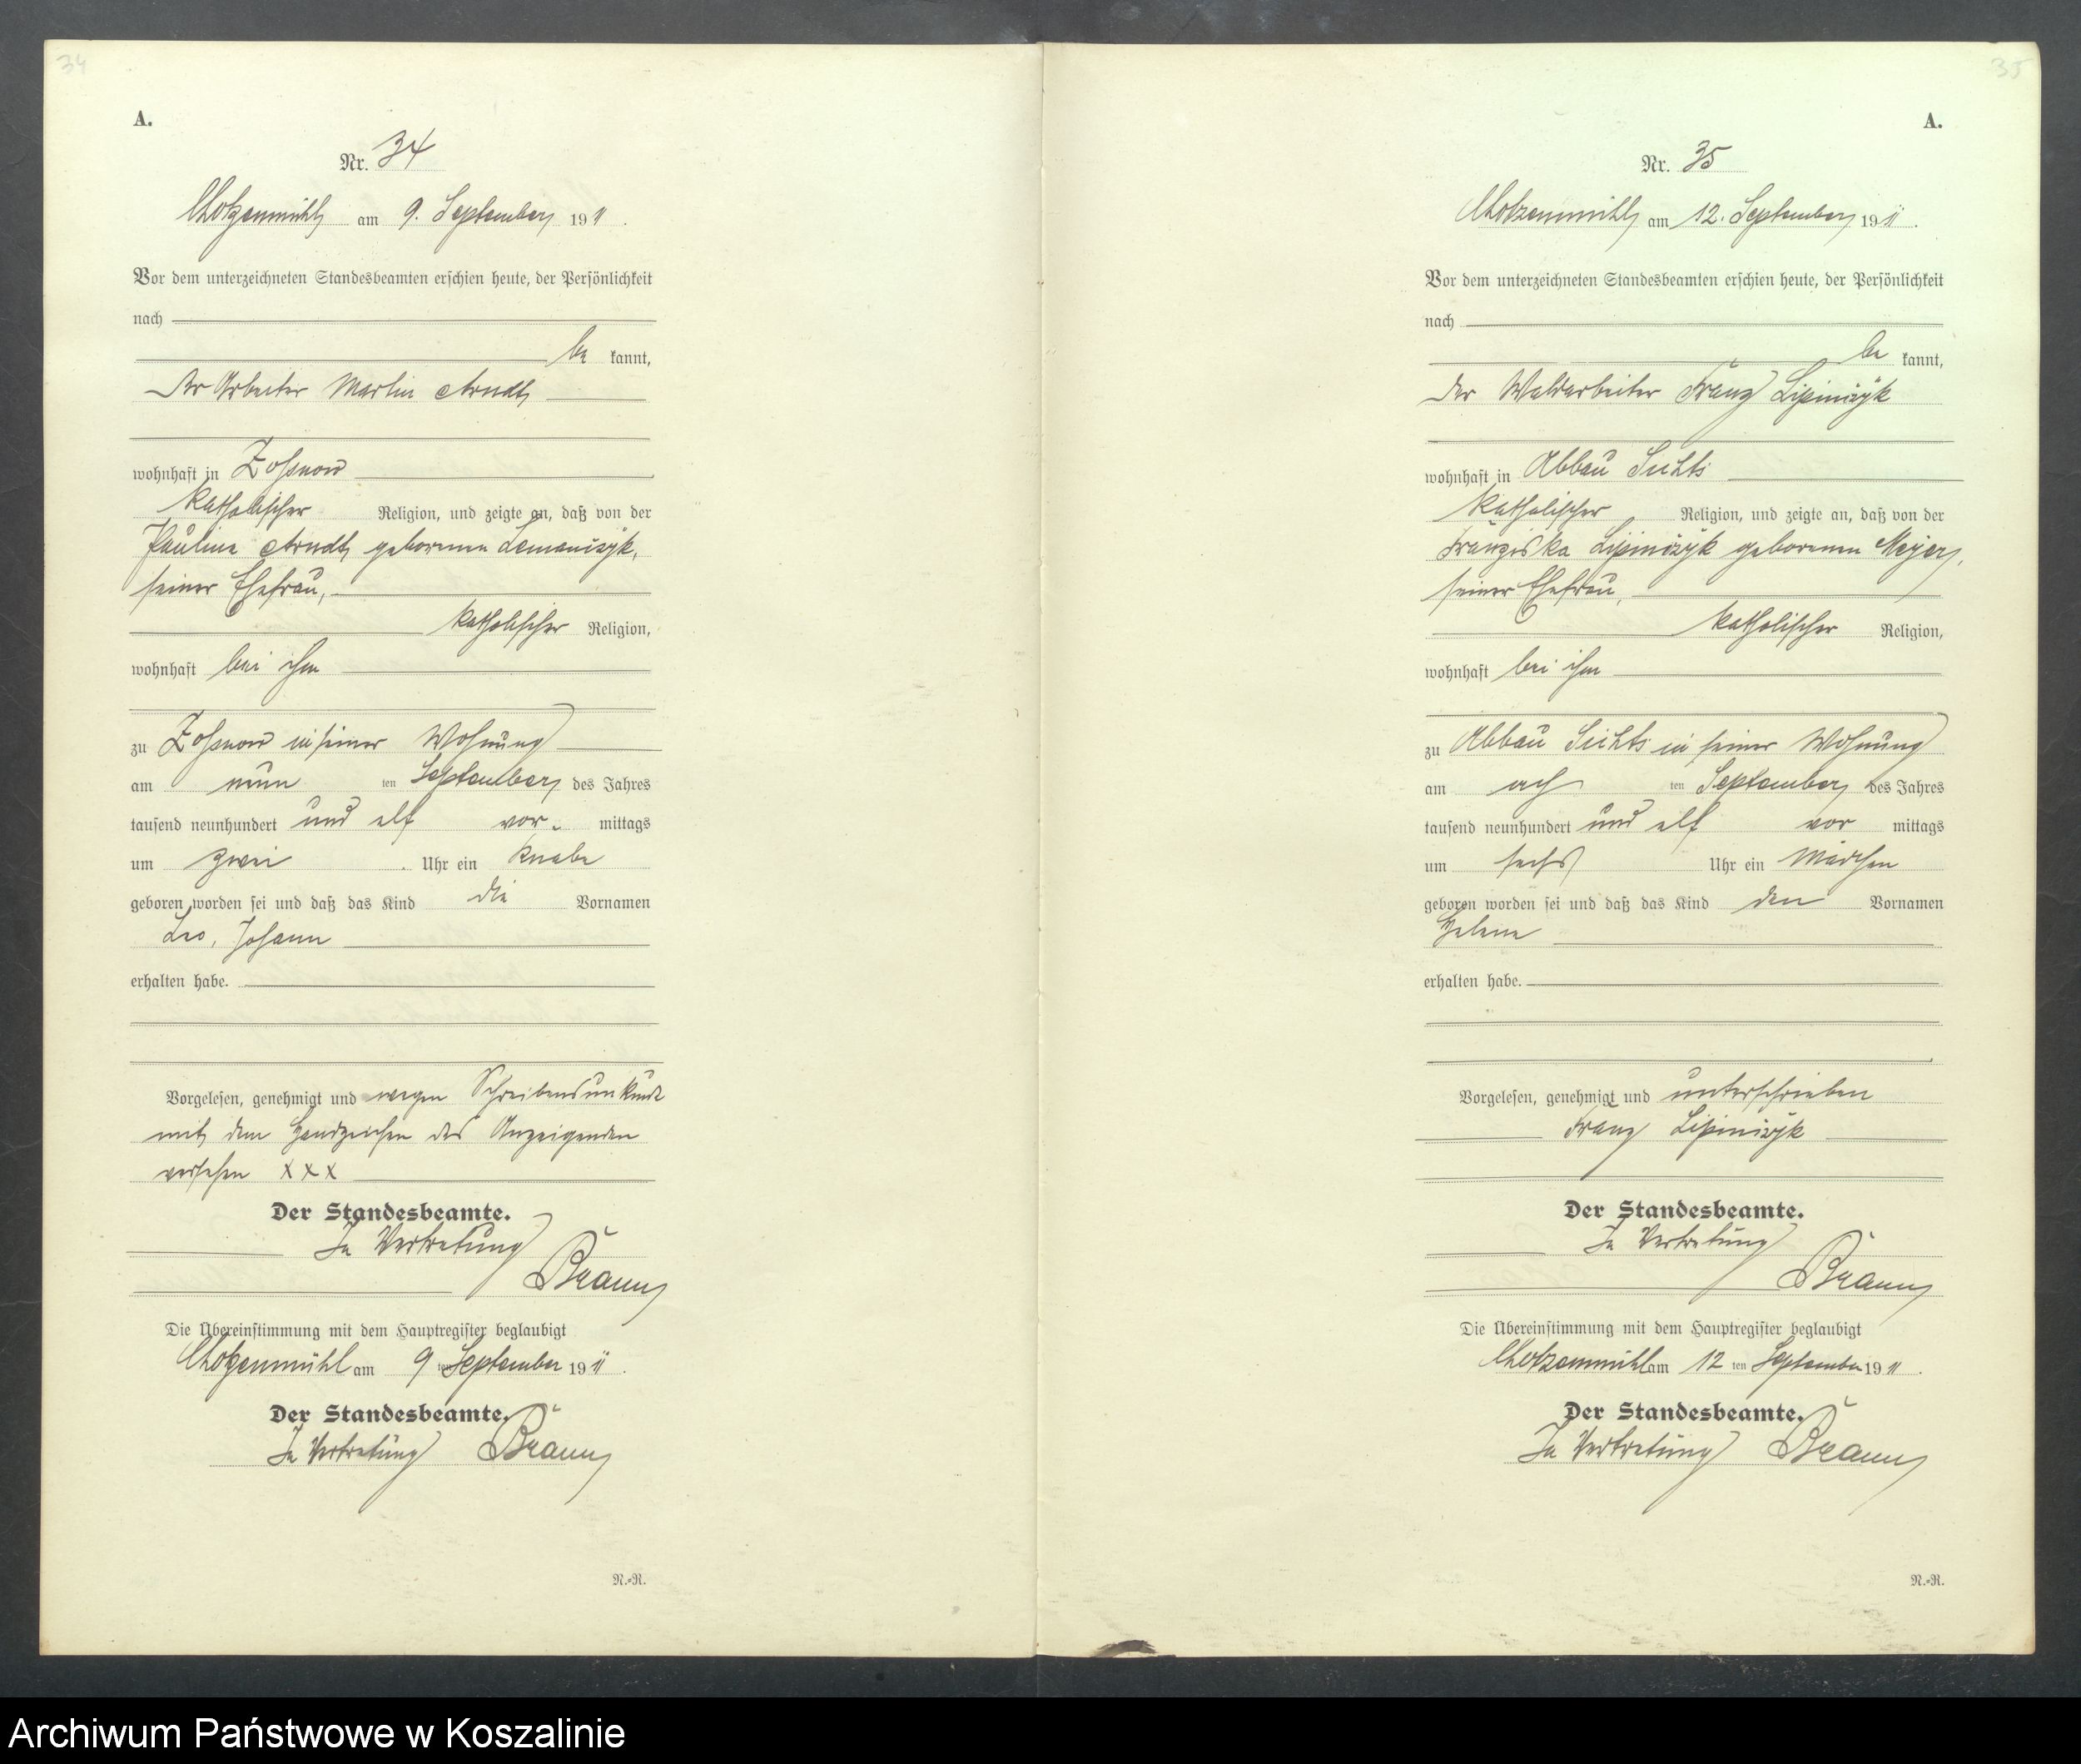 34
A.
Nr. 34
Chotzenmühl am 9. September 1911.
Vor dem unterzeichneten Standesbeamten erschien heute, der Persönlichkeit
nach
be kannt,
der Arbeiter Martin Arndt
wohnhaft in Zossnow
katholischer Religion, und zeigte an, daß von der
Pauline Arndt geborenen Lemanczyk,
seiner Ehefrau,
katholischer Religion,
wohnhaft bei ihm
zu Zossnow in seiner Wohnung
am neun ten September des Jahres
tausend neunhundert und elf vor- mittags
um zwei Uhr ein Knabe
geboren worden sei und daß das Kind die Vornamen
Leo, Johann
erhalten habe.
Vorgelesen, genehmigt und wegen Schreibensunkunde
mit dem Handzeichen des Anzeigenden
versehen x x x
Der Standesbeamte.
In Vertretung
Braun
Die Übereinstimmung mit dem Hauptregister beglaubigt
Chotzenmühl am 9 ten September 1911.
Der Standesbeamte.
In Vertretung Braun
N.-R.
35
A.
Nr. 35
Chotzenmühl am 12. September 1911.
Vor dem unterzeichneten Standesbeamten erschien heute, der Persönlichkeit
nach
be kannt,
der Waldarbeiter Franz Lipinczyk
wohnhaft in Abbau
katholischer Religion, und zeigte an, daß von der
Franziska Lipinczyk geborenen Meyer,
seiner Ehefrau,
katholischer Religion,
wohnhaft bei ihm
zu Abbau in seiner Wohnung
am ach ten September des Jahres
tausend neunhundert und elf vor mittags
um sechs Uhr ein Mädchen
geboren worden sei und daß das Kind den Vornamen
Helene
erhalten habe.
Vorgelesen, genehmigt und unterschrieben
Franz Lipinczyk
Der Standesbeamte.
In Vertretung
Braun
Die Übereinstimmung mit dem Hauptregister beglaubigt
Chotzenmühl am 12 ten September 1911.
Der Standesbeamte.
In Vertretung Braun
N.-R.
Archiwum Państwowe w Koszalinie